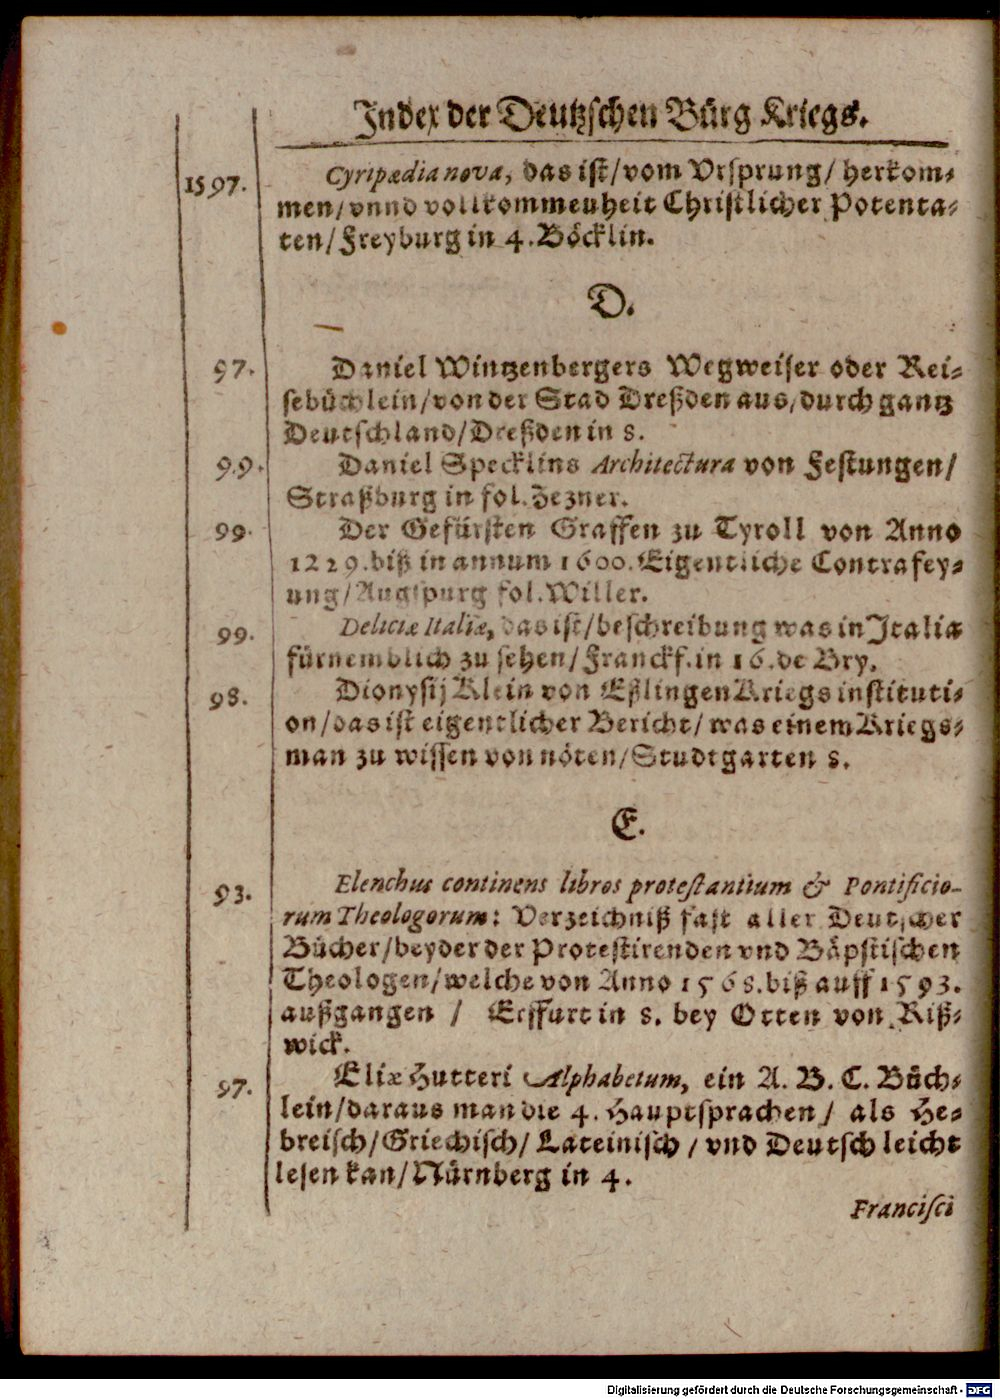 Index der Deutzschen Bürg Kriegs.
1597. Cyripædia nova, das ist/vom Vrsprung/ herkom-
men/vnnd vollkommenheit Christlicher Potenta-
ten/Freyburg in 4. Böcklin.
D.
97. Daniel Wintzenbergers Wegweiser oder Rei-
sebüchlein/von der Stad Dreßden aus/durch gantz
Deutschland/Dreßden in 8.
99. Daniel Specklins Architectura von Festungen/
Straßburg in fol. Zezner.
99. Der Gefürsten Graffen zu Tyroll von Anno
1229. biß in annum 1600. Eigentliche Contrafey-
ung/Augspurg fol. Willer.
99. Deliciæ Italiæ, das ist/beschreibung was in Italia
fürnemblich zu sehen/Franckf. in 16. de Bry.
98. Dionysij Klein von Eßlingen Kriegs instituti-
on/das ist eigentlicher Bericht/ was einem Kriegs-
man zu wissen von nöten/Studtgarten 8.
E.
93. Elenchus continens libros protestantium & Pontificio-
rum Theologorum: Verzeichniß fast aller Deutscher
Bücher/beyder der Protestirenden vnd Bäpstischen
Theologen/welche von Anno 1568. biß auff 1593.
außgangen / Erffurt in 8. bey Otten von Riß-
wick.
97. Eliæ Hutteri Alphabetum, ein A. B. C. Büch-
lein/daraus man die 4. Hauptsprachen/ als He-
breisch/Griechisch/ Lateinisch / vnd Deutsch leicht
lesen kan/Nürnberg in 4.
Francisci
Digitalisierung gefördert durch die Deutsche Forschungsgemeinschaft - DFG